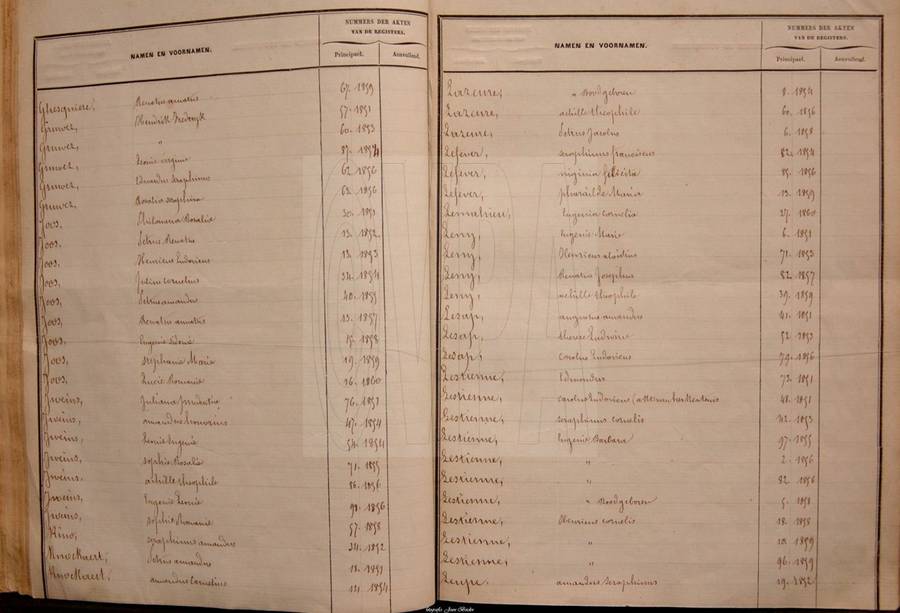 NAMEN EN VOORNAMEN.
NUMMERS DER AKTEN
VAN DE REGISTERS.
Principael. Aanvullend.
Ghesquiere, Renatus amatus 67. 1859
Gruwez, Hendrik Frederyk 57. 1851
Gruwez, " 60. 1853
Gruwez, Leonie virginie 87. 1854
Gruwez, Eduardus Seraphinus 62. 1856
Gruwez, Rosalia seraphina 63. 1856
Joos, Philomena Rosalia 30. 1851
Joos, Petrus Renatus 13. 1852
Joos, Henricus Ludovicus 13. 1853
Joos, Justina cornelia 34. 1854
Joos, Petrus amandus 40. 1855
Joos, Renatus amatus 13. 1857
Joos, Eugenie Sidonie 15. 1858
Joos, stephania Maria 19. 1859
Joos, Lucie Romanie 26. 1860
Jweins, Juliana prudentia 76. 1851
Jweins, amandus honorius 47. 1854
Jweins, Leonie Eugenie 54. 1854
Jweins, sophie Rosalie 71. 1855
Jweins, achille theophile 86. 1856
Jweins, Eugenie Leonie 90. 1856
Jweins, sophie Romanie 57. 1858
Kino, seraphinus amandus 34. 1852
Knockaert, Petrus amandus 18. 1851
Knockaert, amandus Cornelius 111. 1854
NAMEN EN VOORNAMEN.
NUMMERS DER AKTEN
VAN DE REGISTERS.
Principael. Aanvullend.
Lazeure, " Doodgeboren 8. 1854
Lazeure, achille theophile 60. 1856
Lazeure, Petrus Jacobus 6. 1858
Lefever, seraphinus franciscus 82. 1854
Lefever, virginia felicita 85. 1856
Lefever, pharaïlde Maria 13. 1859
Lemahieu, Eugenia cornelia 27. 1860
Leny, Eugenie Marie 6. 1851
Leny, Henricus aloïsius 71. 1853
Leny, Renatus Josephus 82. 1857
Leny, achille theophile 39. 1859
Lesap, augustus amandus 41. 1851
Lesap, therese Ludovica 52. 1853
Lesap, Carolus Ludovicus 79. 1856
Lestienne, Edmondus 73. 1851
Lestienne, carolus Ludovicus 48. 1851
Lestienne, seraphinus cornelis 42. 1853
Lestienne, Eugenie Barbara 97. 1855
Lestienne, " 2. 1856
Lestienne, " 82. 1856
Lestienne, " Doodgeboren 5. 1858
Lestienne, Henricus cornelis 18. 1858
Lestienne, " 20. 1859
Lestienne, " 96. 1859
Leupe, amandus seraphinus 19. 1852